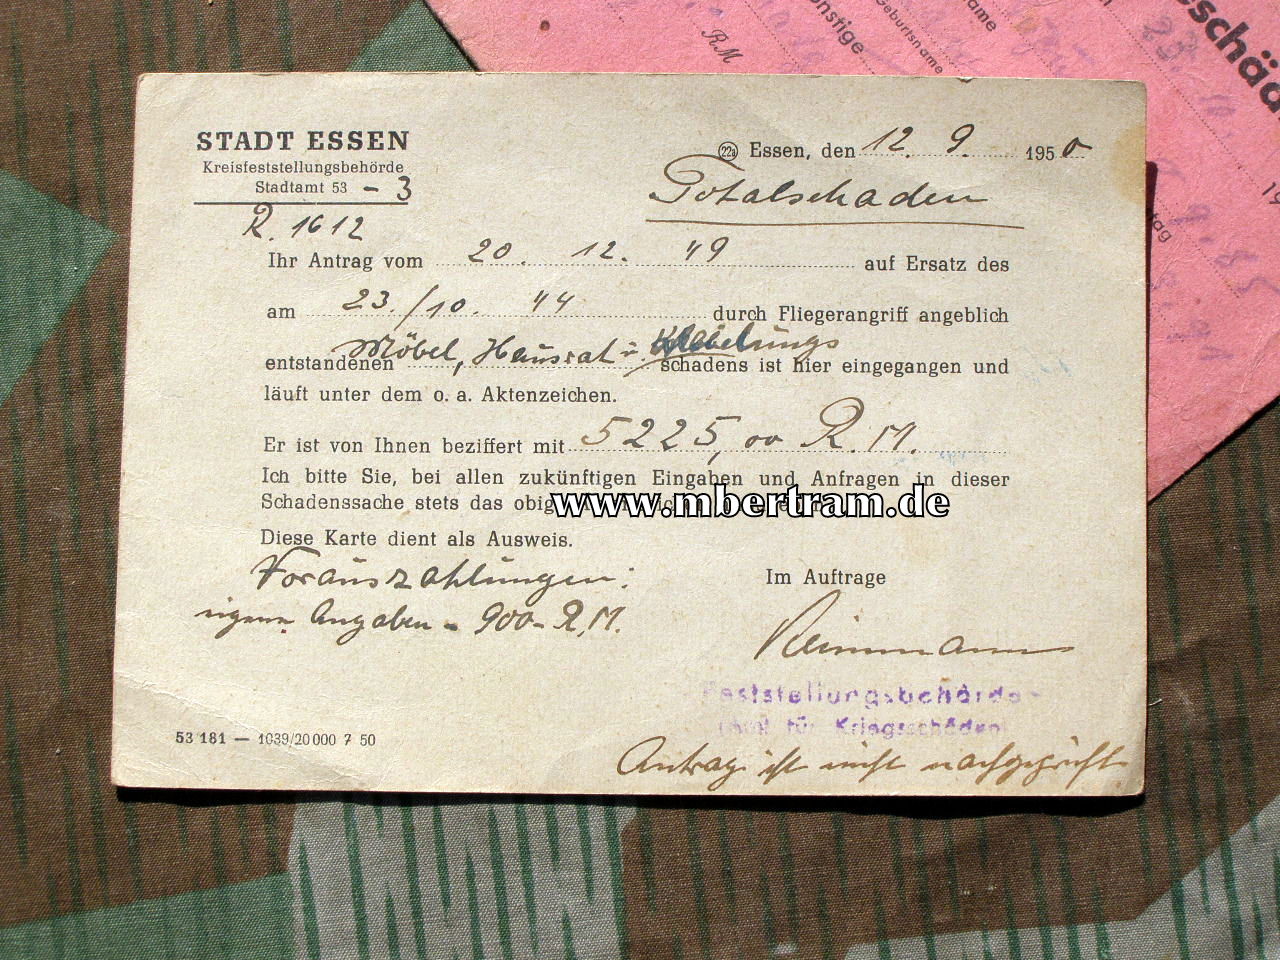 STADT ESSEN
Kreisfeststellungsbehörde
Stadtamt 53 - 3
R. 1612
22a Essen, den 12. 9. 1950
Totalschaden
Ihr Antrag vom 20. 12. 49 auf Ersatz des
am 23./10. 44 durch Fliegerangriff angeblich
entstandenen Möbel, Hausrat u. Kleidungs schadens ist hier eingegangen und
läuft unter dem o. a. Aktenzeichen.
Er ist von Ihnen beziffert mit 5225,00 R.M.
Ich bitte Sie, bei allen zukünftigen Eingaben und Anfragen in dieser
Schadenssache stets das obige
www.mbertram.de
Diese Karte dient als Ausweis.
Vorauszahlungen:
eigene Angaben - 900- R.M.
Im Auftrage
Reinmann
Feststellungsbehörde
(Amt für Kriegsschäden)
Antrag ist nicht nachgeprüft
53 181 — 1039/20 000 7 50
RM
onstige
Geburtsname
ame
schäd
19
tag